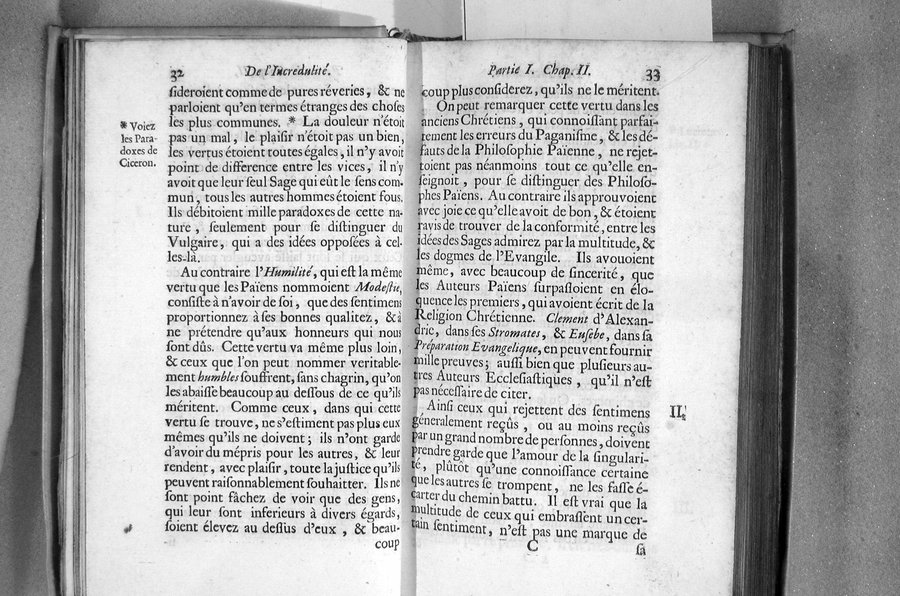 32 De l'Incredulité.
ſideroient comme de pures réveries, & ne
parloient qu'en termes étranges des choſes
les plus communes. * La douleur n'étoit
pas un mal, le plaiſir n'étoit pas un bien,
les vertus étoient toutes égales, il n'y avoit
point de difference entre les vices, il n'y
avoit que leur ſeul Sage qui eût le ſens com-
mun, tous les autres hommes étoient fous.
Ils débitoient mille paradoxes de cette na-
ture, ſeulement pour ſe diſtinguer du
Vulgaire, qui a des idées oppoſées à cel-
les-là.
* Voiez
les Para-
doxes de
Ciceron.
Au contraire l'Humilité, qui eſt la même
vertu que les Païens nommoient Modeſtie,
conſiſte à n'avoir de ſoi, que des ſentimens
proportionnez à ſes bonnes qualitez, & à
ne prétendre qu'aux honneurs qui nous
ſont dûs. Cette vertu va même plus loin,
& ceux que l'on peut nommer veritable-
ment humbles ſouffrent, ſans chagrin, qu'on
les abaiſſe beaucoup au deſſous de ce qu'ils
méritent. Comme ceux, dans qui cette
vertu ſe trouve, ne s'eſtiment pas plus eux
mêmes qu'ils ne doivent; ils n'ont garde
d'avoir du mépris pour les autres, & leur
rendent, avec plaiſir, toute la juſtice qu'ils
peuvent raiſonnablement ſouhaitter. Ils ne
ſont point fâchez de voir que des gens,
qui leur ſont inferieurs à divers égards,
ſoient élevez au deſſus d'eux, & beau-
coup
Partie I. Chap. II. 33
coup plus conſiderez, qu'ils ne le méritent.
On peut remarquer cette vertu dans les
anciens Chrétiens, qui connoiſſant parfai-
tement les erreurs du Paganiſme, & les dé-
fauts de la Philoſophie Païenne, ne rejet-
toient pas néanmoins tout ce qu'elle en-
ſeignoit, pour ſe diſtinguer des Philoſo-
phes Païens. Au contraire ils approuvoient
avec joie ce qu'elle avoit de bon, & étoient
ravis de trouver de la conformité, entre les
idées des Sages admirez par la multitude, &
les dogmes de l'Evangile. Ils avouoient
même, avec beaucoup de ſincerité, que
les Auteurs Païens ſurpaſſoient en élo-
quence les premiers, qui avoient écrit de la
Religion Chrétienne. Clement d'Alexan-
drie, dans ſes Stromates, & Euſebe, dans ſa
Préparation Evangelique, en peuvent fournir
mille preuves; auſſi bien que pluſieurs au-
tres Auteurs Eccleſiaſtiques, qu'il n'eſt
pas néceſſaire de citer.
Ainſi ceux qui rejettent des ſentimens
généralement reçûs, ou au moins reçûs
par un grand nombre de perſonnes, doivent
prendre garde que l'amour de la ſingulari-
té, plûtôt qu'une connoiſſance certaine
que les autres ſe trompent, ne les faſſe é-
carter du chemin battu. Il eſt vrai que la
multitude de ceux qui embraſſent un cer-
tain ſentiment, n'eſt pas une marque de
II.
C ſa